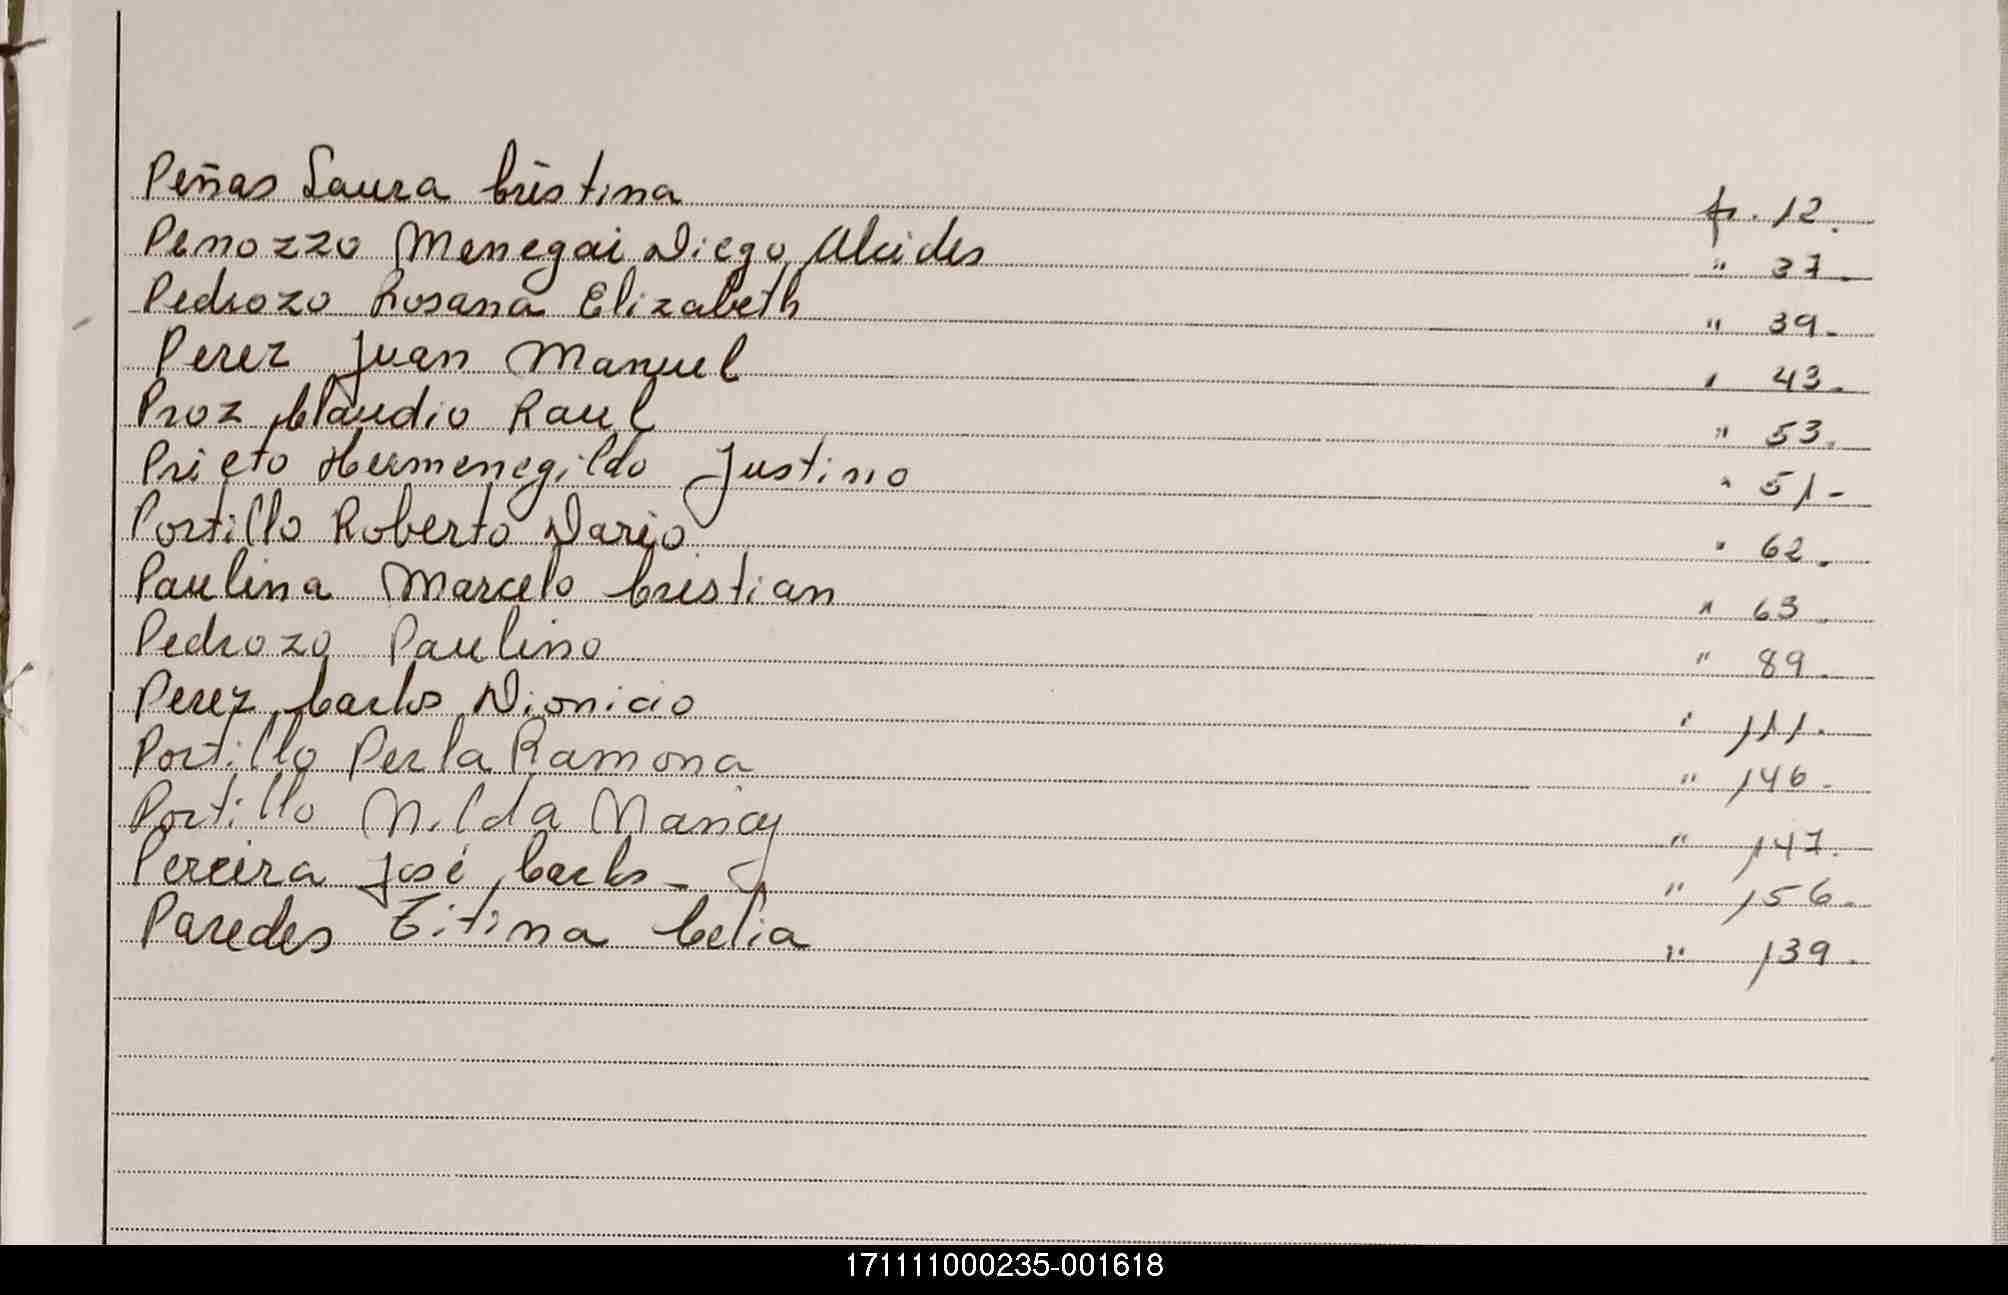 Peñas Laura Cristina fs. 12.
Penozzo Menegai Diego Alcides " 37.
Pedrozo Rosana Elizabeth " 39.
Perez Juan Manuel " 43.
Proz Claudio Raul " 53.
Prieto Hermenegildo Justino " 51-
Portillo Roberto Dario " 62.
Paulina Marcelo Cristian " 63.
Pedrozo Paulino " 89.
Perez Carlos Dionicio " 111.
Portillo Perla Ramona " 146.
Portillo Nilda Nancy " 147.
Pereira José Carlos - " 156.
Paredes Titina Celia " 139.
171111000235-001618